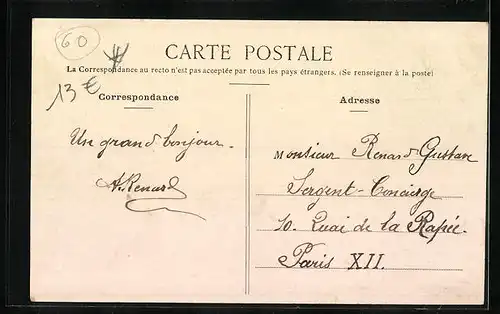 60
13 €
CARTE POSTALE
La Correspondance au recto n'est pas acceptée par tous les pays étrangers. (Se renseigner à la poste)
Correspondance
Adresse
Un grand bonjour.
A. Renard
Monsieur Renard Gustave
Sergent-Concierge
10. Quai de la Rapée.
Paris XII.